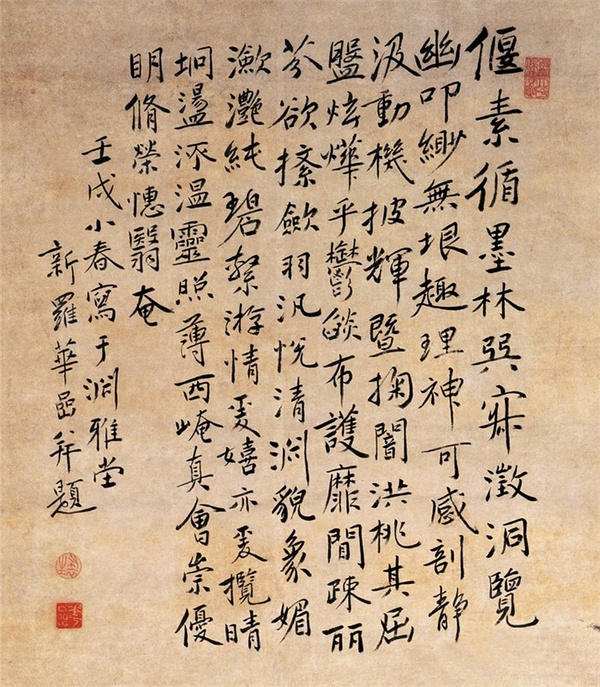 偃素循墨林巽寂澂洞覽
幽叩緲無垠趣理神可感剖靜
汲動機披輝暨掬闇洪桃其屈
盤炫燁乎鬱燄布護靡閒疎丽
芬欲歛羽汎悅清渊貌象媚
瀲灧純碧縈游情爰嬉亦爰攬晴
坰盪溫靈照薄西崦真會崇優
明脩榮憓翳奄
壬戌小春寫于渊雅堂
新羅華嵒并題